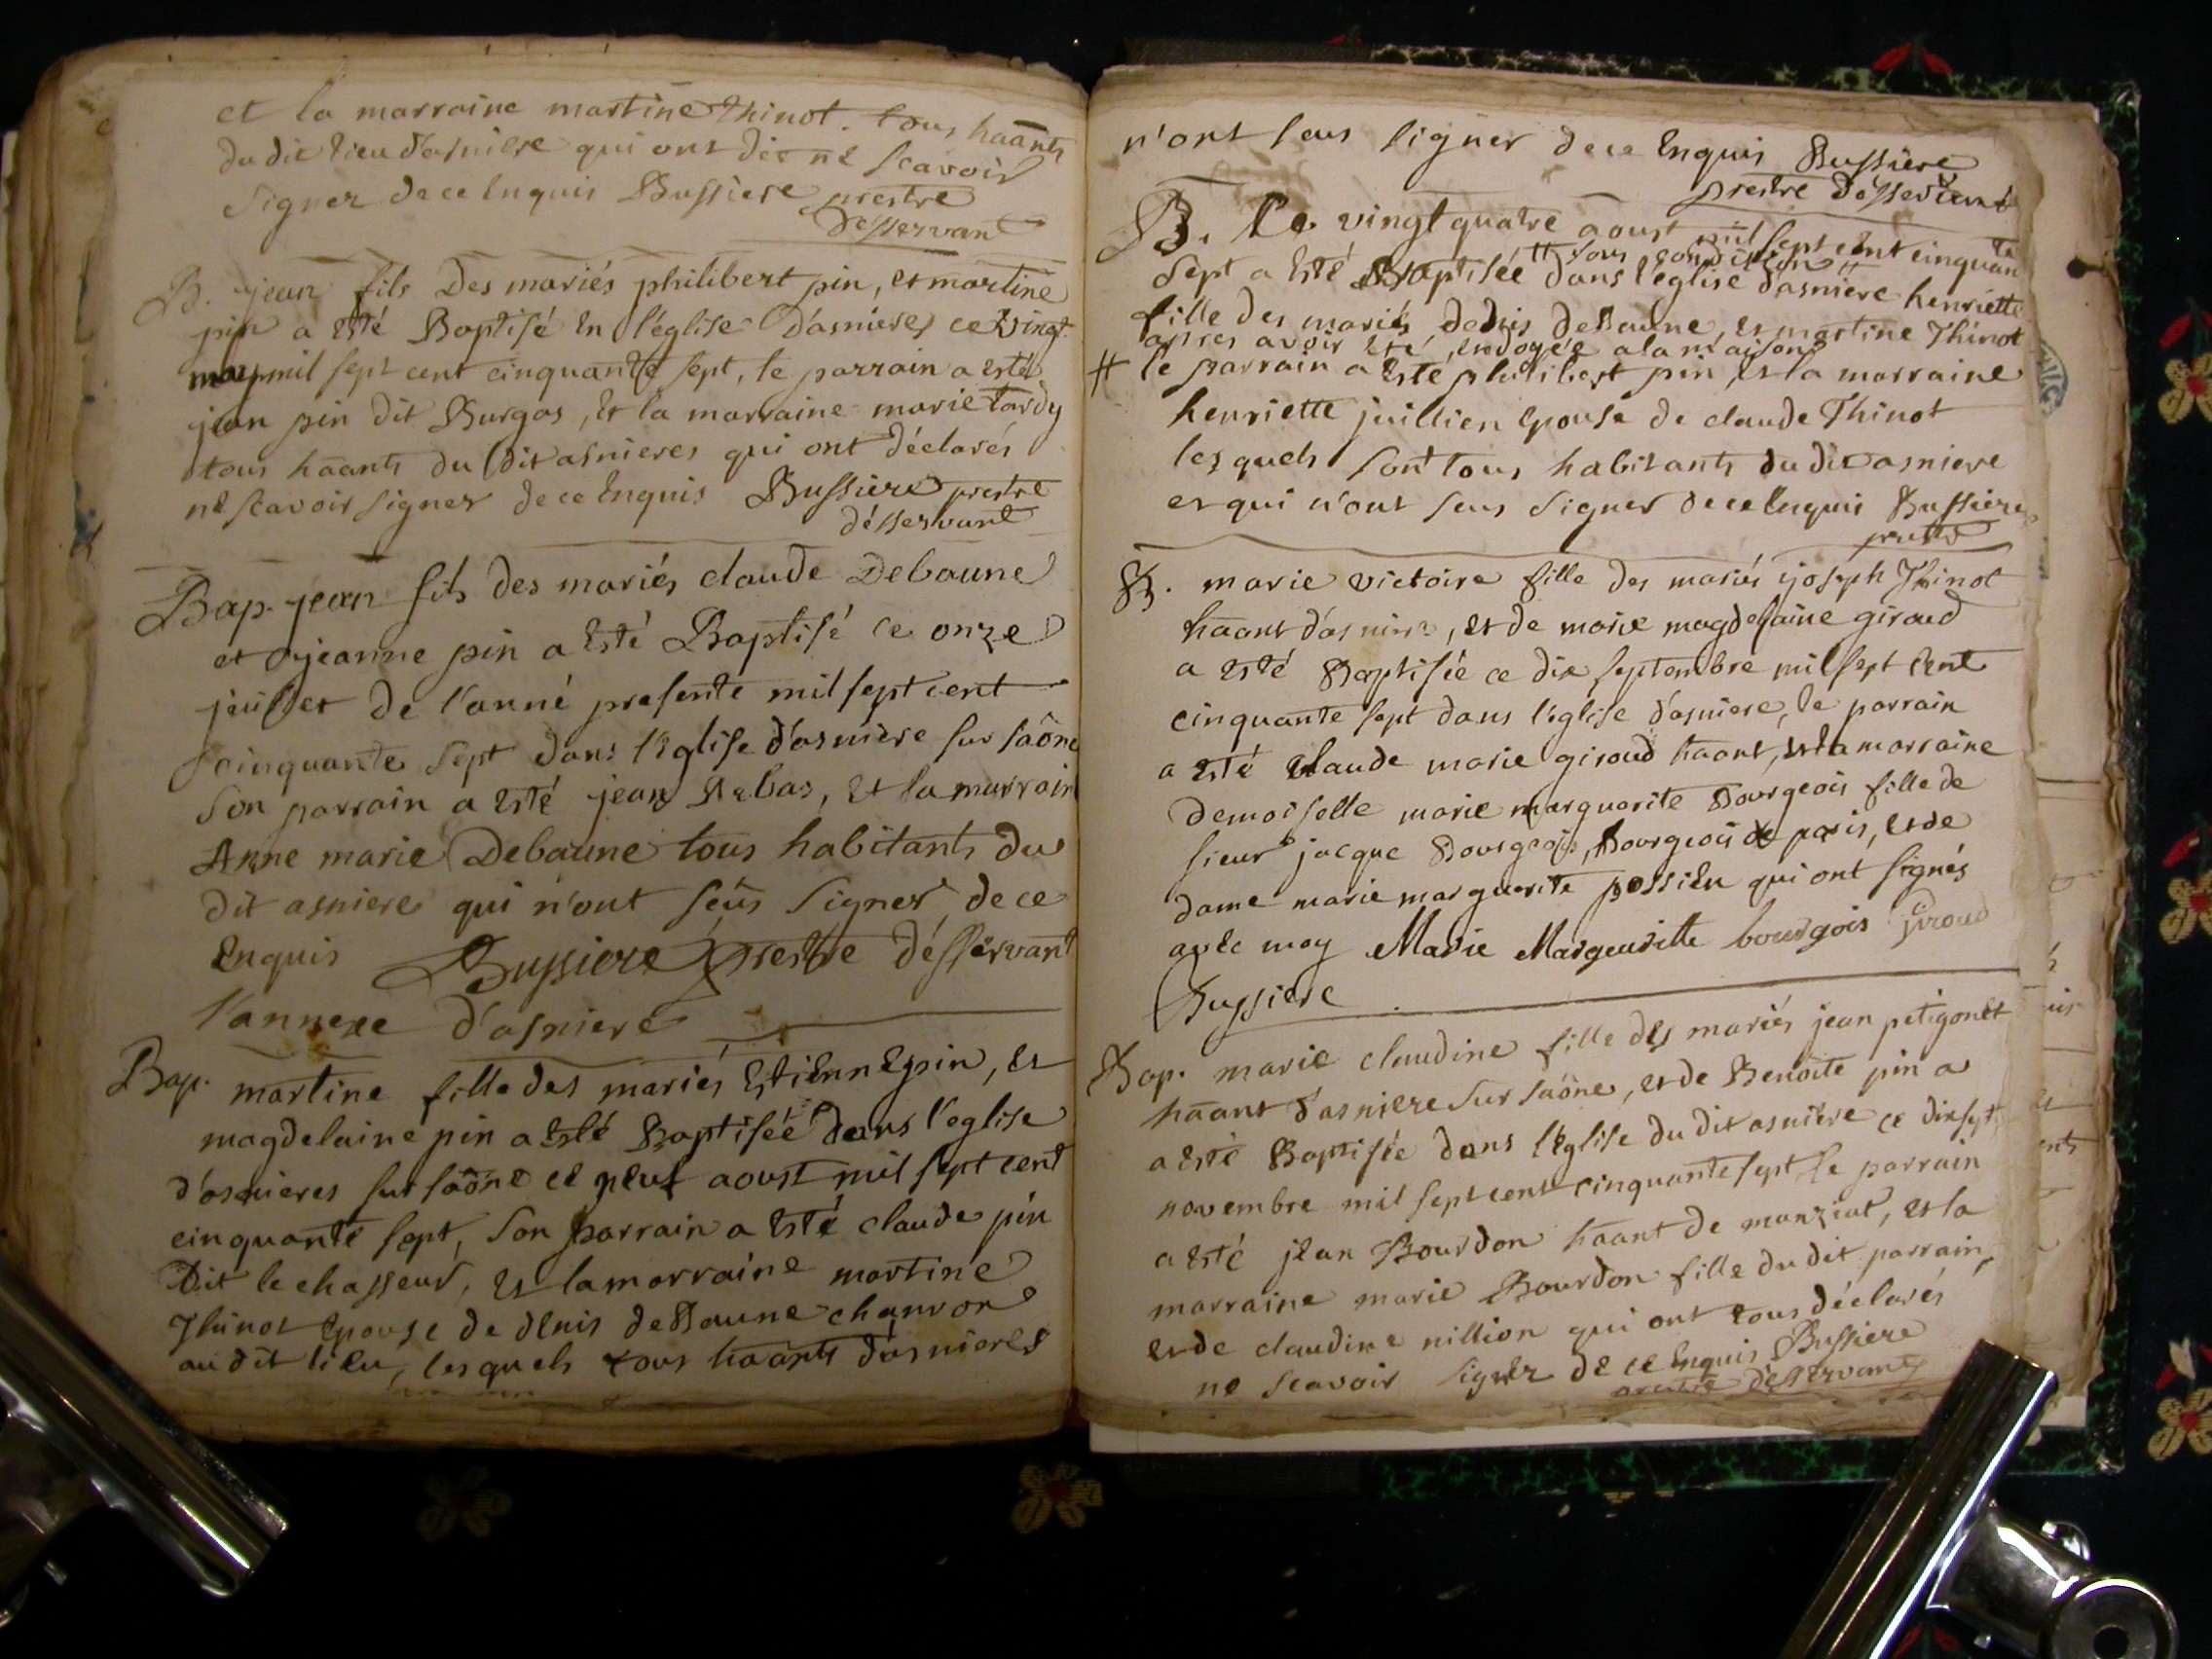 et la marraine martine thinot. tous haants
du dit lieu d'asniere qui ont dit ne scavoir
signer de ce enquis Bussiere prestre
désservant
B. jean fils des mariés philibert pin, et martine
pin a esté Baptisé en l'église d'asnieres ce vingt
may mil sept cent cinquante sept, le parrain a esté
jean pin dit Burgas, et la marraine marie tardy
tous haants du dit asnieres qui ont déclarés
ne scavoir signer de ce enquis Bussiere prestre
désservant
Bap. jean fils des mariés claude Debaune
et jeanne pin a esté Baptisé ce onze
juillet de l'anné presente mil sept cent
cinquante sept dans l'eglise d'asniere sur saône
son parrain a esté jean, et la marrain
Anne marie Debaune tous habitants du
dit asniere qui n'ont sçeus signer de ce
enquis Bussiere prestre désservant
l'annexe d'asniere
Bap. martine fille des mariés estienne pin, et
magdelaine pin a esté Baptisée dans l'eglise
d'asnieres sur saône ce neuf aoust mil sept cent
cinquante sept, son parrain a esté claude pin
dit le chasseur, et la marraine martine
Thinot epouse de denis deBaune chanvon
au dit lieu, les quels tous haants d'asnieres
n'ont seus signer de ce enquis Bussiere
prestre désservant
B. Le vingt quatre aoust mil sept cent cinquan te
sept a esté Baptisée # sous condition # dans l'eglise d'asniere henriette
fille des mariés denis deBaune, et martine Thinot
# apres avoir été endoyée a la maison
le parrain a esté philibert pin, et la marraine
henriette juillien epouse de claude Thinot
les quels sont tous habitants du dit asniere
et qui n'ont seus signer de ce enquis Bussiere
prestre
B. marie victoire fille des mariés joseph Thinot
haant d'asniere, et de marie magdelaine giroud
a esté Baptisée ce dix septembre mil sept cent
cinquante sept dans l'eglise d'asniere, le parrain
a esté claude marie giroud haant, et la marraine
demoiselle marie marguerite Bourgeois fille de
sieur jacque Bourgeois, Bourgeois de paris, et de
dame marie marguerite possieu qui ont signés
avec moy Marie Margeuritte bourgois Giroud
Bussiere
Bap. marie claudine fille des mariés jean petigonet
haant d'asniere sur saône, et de Benoite pin a
a esté Baptisée dans l'eglise du dit asniere ce dix sept
novembre mil sept cent cinquante sept le parrain
a esté jean Bourdon haant de manziat, et la
marraine marie Bourdon fille du dit parrain,
et de claudine nillion qui ont tous déclarés
ne scavoir signer de ce enquis Bussiere
prestre désservant